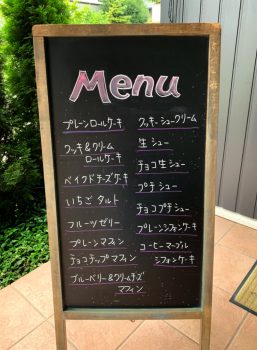 Menu
プレーンロールケーキ
クッキ&クリーム
ロールケーキ
ベイクドチーズケーキ
いちごタルト
フルーツゼリー
プレーンマフィン
チョコチップマフィン
ブルーベリー&クリームチーズ
マフィン
クッキーシュークリーム
生シュー
チョコ生シュー
プチシュー
チョコプチシュー
プレーンシフォンケーキ
コーヒーマーブル
シフォンケーキ